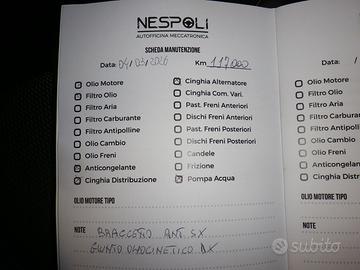 NESPOLI
AUTOFFICINA MECCATRONICA
SCHEDA MANUTENZIONE
DATA: 04/03/2026 KM 117000
Olio Motore
Filtro Olio
Filtro Aria
Filtro Carburante
Filtro Antipolline
Olio Cambio
Olio Freni
Anticongelante
Cinghia Distribuzione
Cinghia Alternatore
Cinghia Com. Vari.
Past. Freni Anteriori
Dischi Freni Anteriori
Past. Freni Posteriori
Dischi Freni Posteriori
Candele
Frizione
Pompa Acqua
OLIO MOTORE TIPO
NOTE BRACCETTO ANT. SX
GIUNTO OMOCINETICO DX
DATA: /
Olio Motore
Filtro Olio
Filtro Aria
Filtro Carburante
Filtro Antipolline
Olio Cambio
Olio Freni
Anticongelante
Cinghia Distribuz
OLIO MOTORE TIPO
NOTE
subito